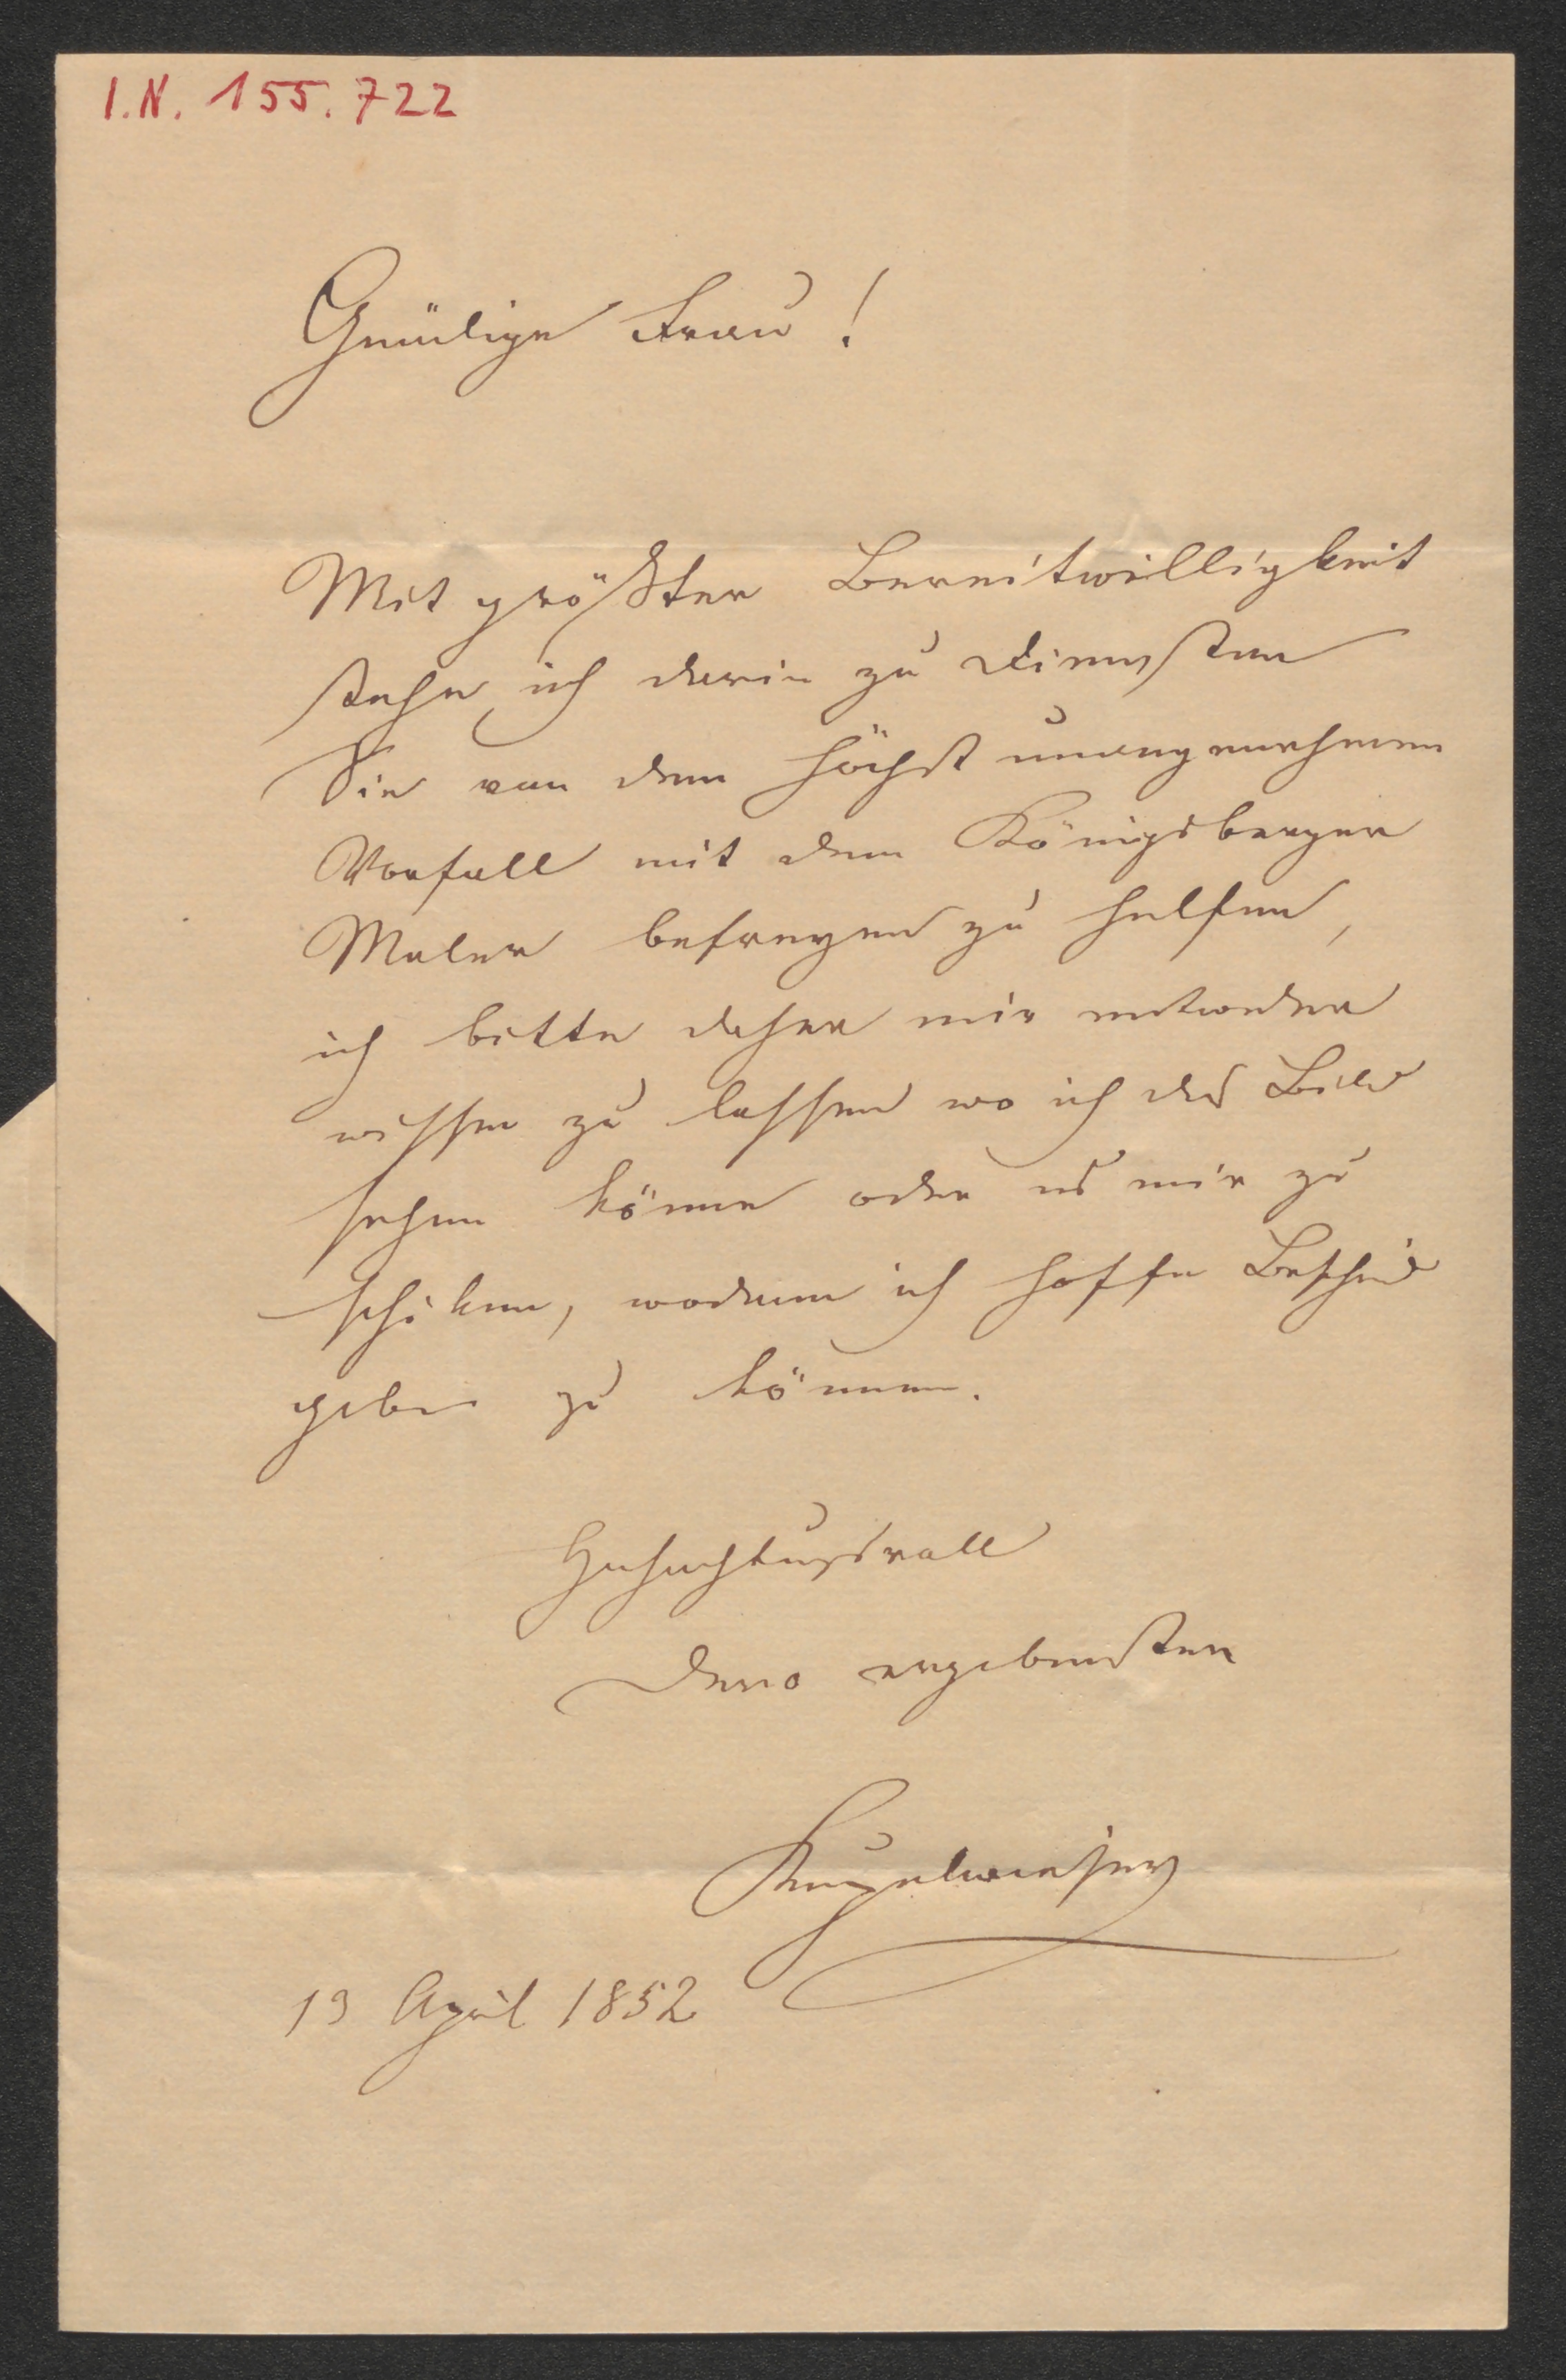 I.N. 155.722
Gnädige Frau!
Mit größter Bereitwilligkeit
stehe ich darin zu Diensten
Sie von dem höchst unangenehmen
Vorfall mit dem Königsberger
Maler befreyen zu helfen,
ich bitte daher mir entweder
wissen zu lassen wo ich das Bild
sehen könne oder es mir zu
schiken, wodann ich hoffe Bescheid
geben zu können.
Hochachtungsvoll
Dero ergebenster
Kupelwieser
19 April 1852